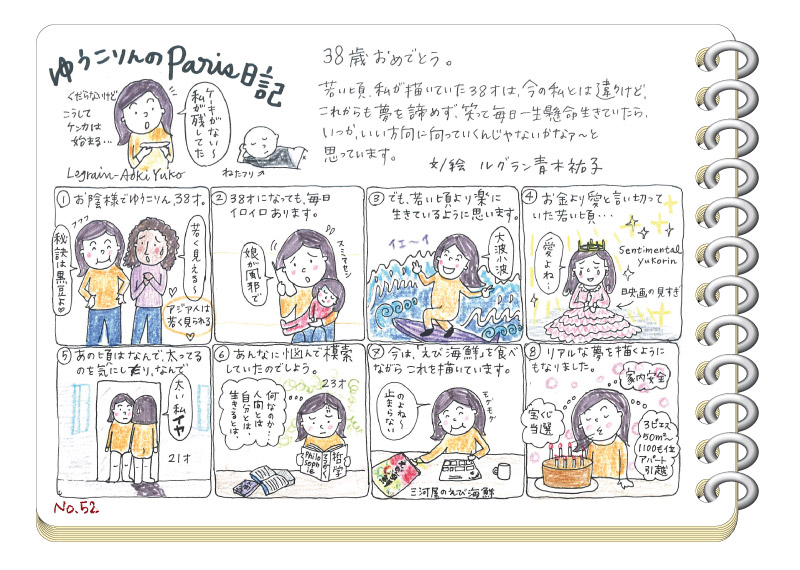 ゆうこりんのParis日記
くだらないけど
こうして
ケンカは
始まる…
ケーキがない〜
私が
残してた
Legrain-Aoki Yuko
ねたフリ
38歳おめでとう。
若い頃、私が描いていた38才は、今の私とは違うけど、
これからも夢を諦めず、笑って毎日一生懸命生きていたら、
いつか、いい方向に向っていくんじゃないかなァ〜と
思っています。
文/絵 ルグラン青木祐子
① お陰様でゆうこりん38才。
フフフ
秘訣は黒豆よ♡
若く見える〜
アジア人は
若く見られる
② 38才になっても、毎日
イロイロあります。
スミマセン
娘が風邪で
③ でも、若い頃より楽に
生きているように思います。
イェ〜イ
大波小波
④ お金より愛と言い切って
いた若い頃…
愛よね〜
Sentimental
yukorin
映画の見すぎ
⑤ あの頃はなんで、太ってる
のを気にしたり、なんで
太い私
イヤ
21才
⑥ あんなに悩んで模索
していたのでしょう。
23才
何なのか…
人間とは
自分とは、
生きるとは、
Philosophie
哲学
⑦ 今は、「えび海鮮」を食べ
ながらこれを描いています。
モグモグ
のよね〜
止まらない
三河屋のえび海鮮
⑧ リアルな夢を描くように
もなりました。
家内安全
宝くじ
当選
3ピエス
50m²〜
1100€位
アパート
引越
No.52